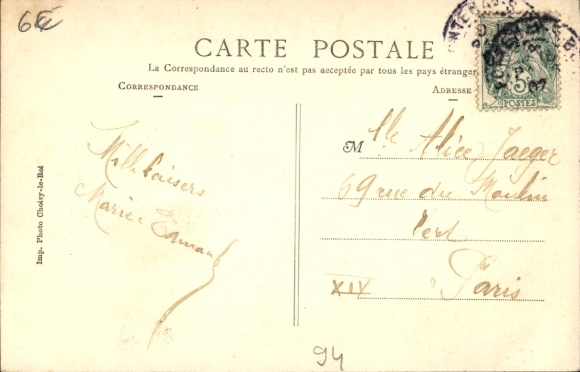 6€
CARTE POSTALE
La Correspondance au recto n'est pas acceptée par tous les pays étranger
CORRESPONDANCE
ADRESSE
5
POSTES
Mlle Alice Jaeger
69 rue du Moulin
Vert
XIV Paris
Mille baisers
Marie
Imp. Photo Choisy-le-Roi
94